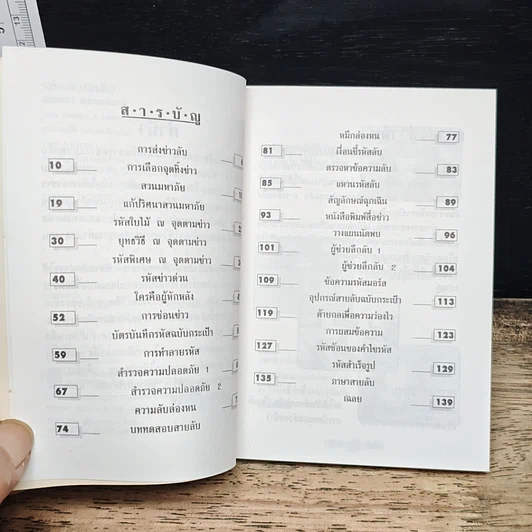 ส·า·ร·บั·ญ
การส่งข่าวลับ
10 การเลือกจุดทิ้งข่าว
สวนมหาภัย
19 แก้ปริศนาสวนมหาภัย
รหัสใบไม้ ณ จุดตามข่าว
30 ยุทธวิธี ณ จุดตามข่าว
รหัสพิเศษ ณ จุดตามข่าว
40 รหัสข่าวด่วน
ใครคือผู้หักหลัง
52 การซ่อนข่าว
บัตรบันทึกรหัสฉบับกระเป๋า
59 การทำลายรหัส
สำรวจความปลอดภัย 1
67 สำรวจความปลอดภัย 2
ความลับล่องหน
74 บททดสอบสายลับ
หมึกล่องหน 77
81 เงื่อนขี้รหัสลับ
ตรวจหาข้อความลับ 83
85 แหวนรหัสลับ
สัญลักษณ์ฉุกเฉิน 89
93 หนังสือพิมพ์สื่อข่าว
วางแผนนัดพบ 96
101 ผู้ช่วยลึกลับ 1
ผู้ช่วยลึกลับ 2 104
109 ข้อความรหัสมอร์ส
อุปกรณ์สายลับฉบับกระเป๋า 113
119 ด้ายกลเพื่อความว่องไว
การผสมข้อความ 123
127 รหัสซ้อนของคำไขรหัส
รหัสสำเร็จรูป 129
135 ภาษาสายลับ
เฉลย 139